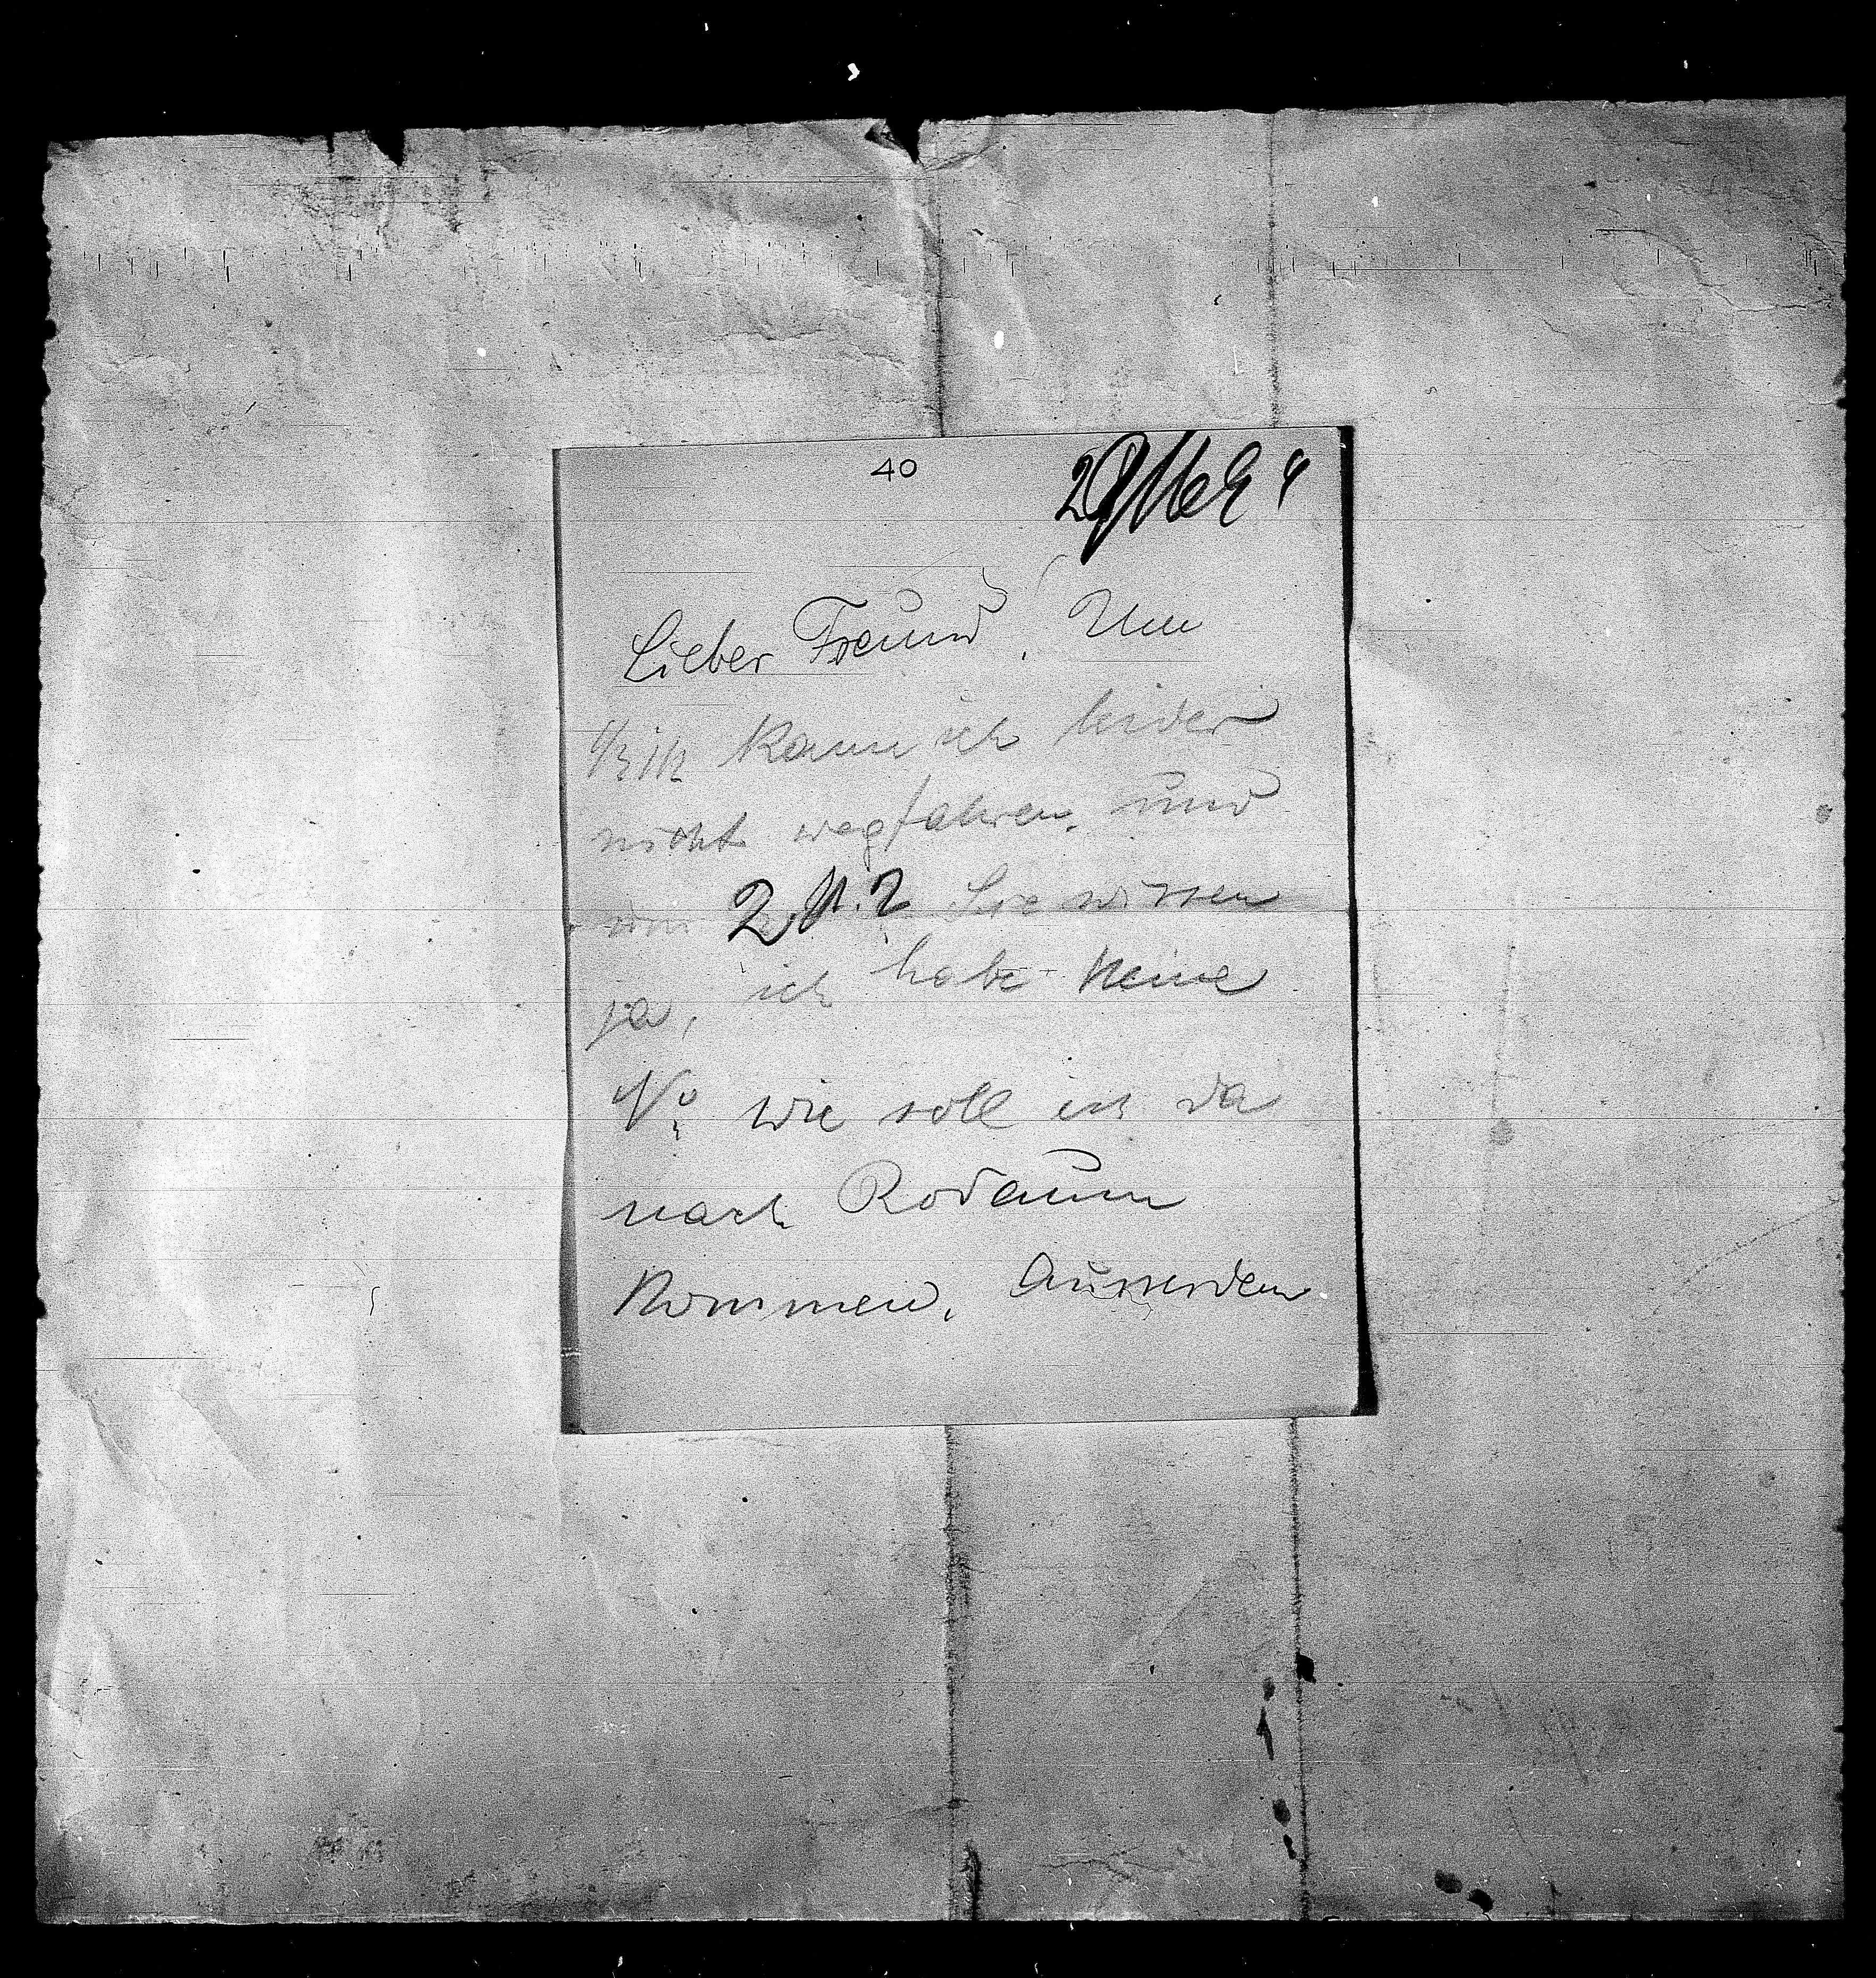 40
29/6 94
Lieber Freund, Um
1/2 1/2 kann ich leider
nicht wegfahren. und
um 2 11.? Sie wissen
ja, ich habe keine
No wie soll ich da
nach Rodaun
kommen. Ausserdem